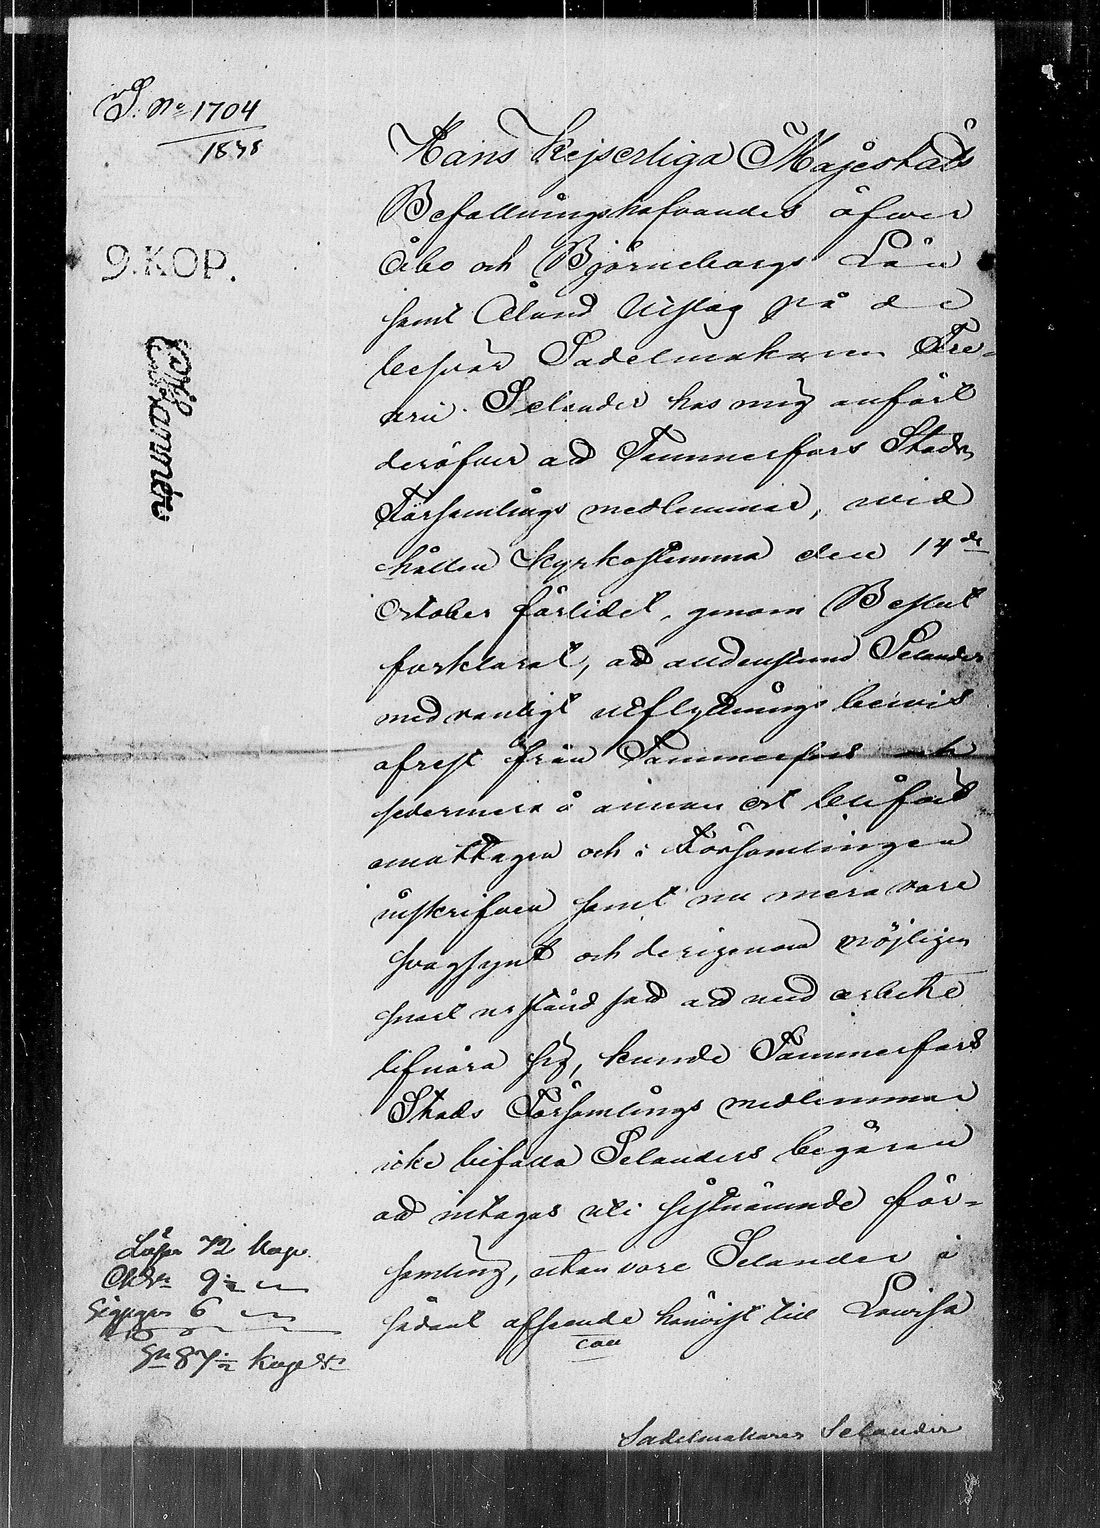 S. No 1704
1838
9. KOP.
Hans Kejserliga Majestäts
Befallningshafvandes öfwer
Åbo och Björneborgs Län
samt Åland Utslag på de
besvär Sadelmakaren Fre-
Selander hos mig anfört
deröfwer ad Tammerfors Stads
Församlings medlemmar, wid
hållen Kyrkostämma den 14de
October förlidet, genom Beslut
forklarat, ad alldenstund Selander
med vanligt utflyttnings bewis
afrest från Tammerfors och
sedermera å annan ort blifvit
emottagen och i Församlingen
inskrifven samt nu mera vore
svagsynt och derigenom möjligen
snart urståndsad ad med arbete
lifnära sig, kunde Tammerfors
Stads Församlings medlemmar
icke bifalla Selanders begäran
ad intagas uti sistnämnde för-
samling, utan vore Selander i
sådant afseende hänvist till Lowisa
Lösen 72 Kop.
9½
6
Sn 87½ Kop Sr
Sadelmakaren Selander